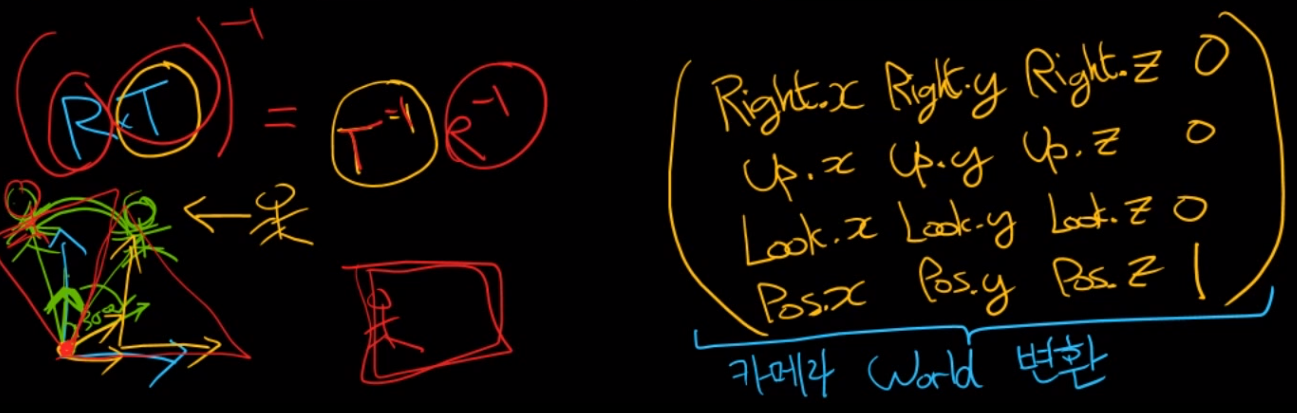 (R×T)⁻¹ = T⁻¹ R⁻¹
30°
Right.x Right.y Right.z 0
Up.x Up.y Up.z 0
Look.x Look.y Look.z 0
Pos.x Pos.y Pos.z 1
카메라 World 변환